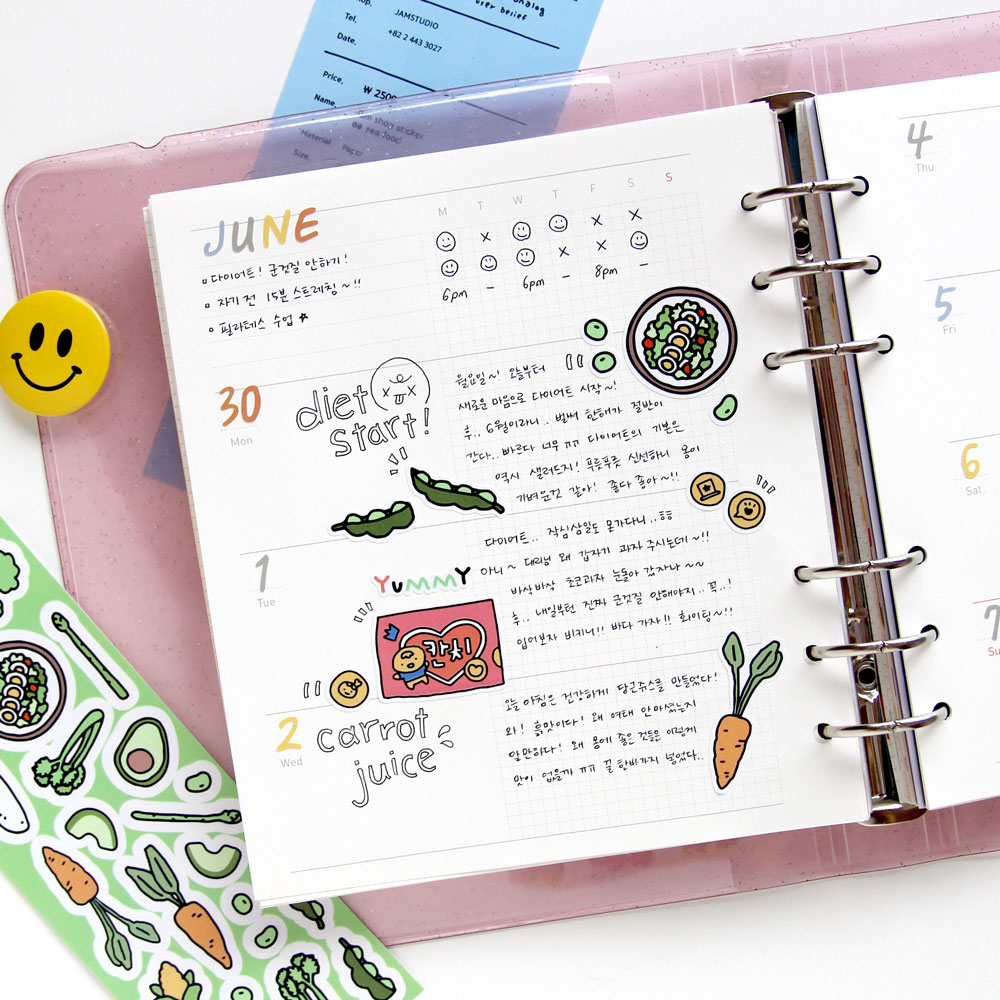 analog
user belief
JAMSTUDIO
Tel. +82 2 443 3027
Date.
Price. ₩ 250
Name. shop sticker
sea food
Material Paper
Size.
JUNE
M T W T F S S
다이어트! 군것질 안하기!
자기 전 15분 스트레칭~!!
필라테스 수업
6pm - 6pm - 8pm -
30
Mon
diet
start!
월요일~! 오늘부터
새로운 마음으로 다이어트 시작~!
후.. 6월이라니.. 벌써 한해가 절반이
간다.. 빠르다 너무 ㅠㅠ 다이어트의 기본은
역시 샐러드지! 푸릇푸릇 신선하니 몸이
가벼운것 같아! 좋다 좋아~!!
1
Tue
YUMMY
칸치
다이어트.. 작심삼일도 못가다니..ㅎㅎ
아니~ 대리님 왜 갑자기 과자 주시는데~!!
바삭바삭 초코과자 눈돌아 갔자나~~
후.. 내일부턴 진짜 군것질 안해야지.. 꼭..!
입어보자 비키니!! 바다 가자!! 화이팅~!!
2
Wed
carrot
juice
오늘 아침은 건강하게 당근쥬스를 만들었다!
와! 흙맛이다! 왜 여태 안마셨는지
알만하다! 왜 몸에 좋은 것들은 이렇게
맛이 없을까 ㅠㅠ 꿀 한바가지 넣었다..
4
Thu
5
Fri
6
Sat
7
Su